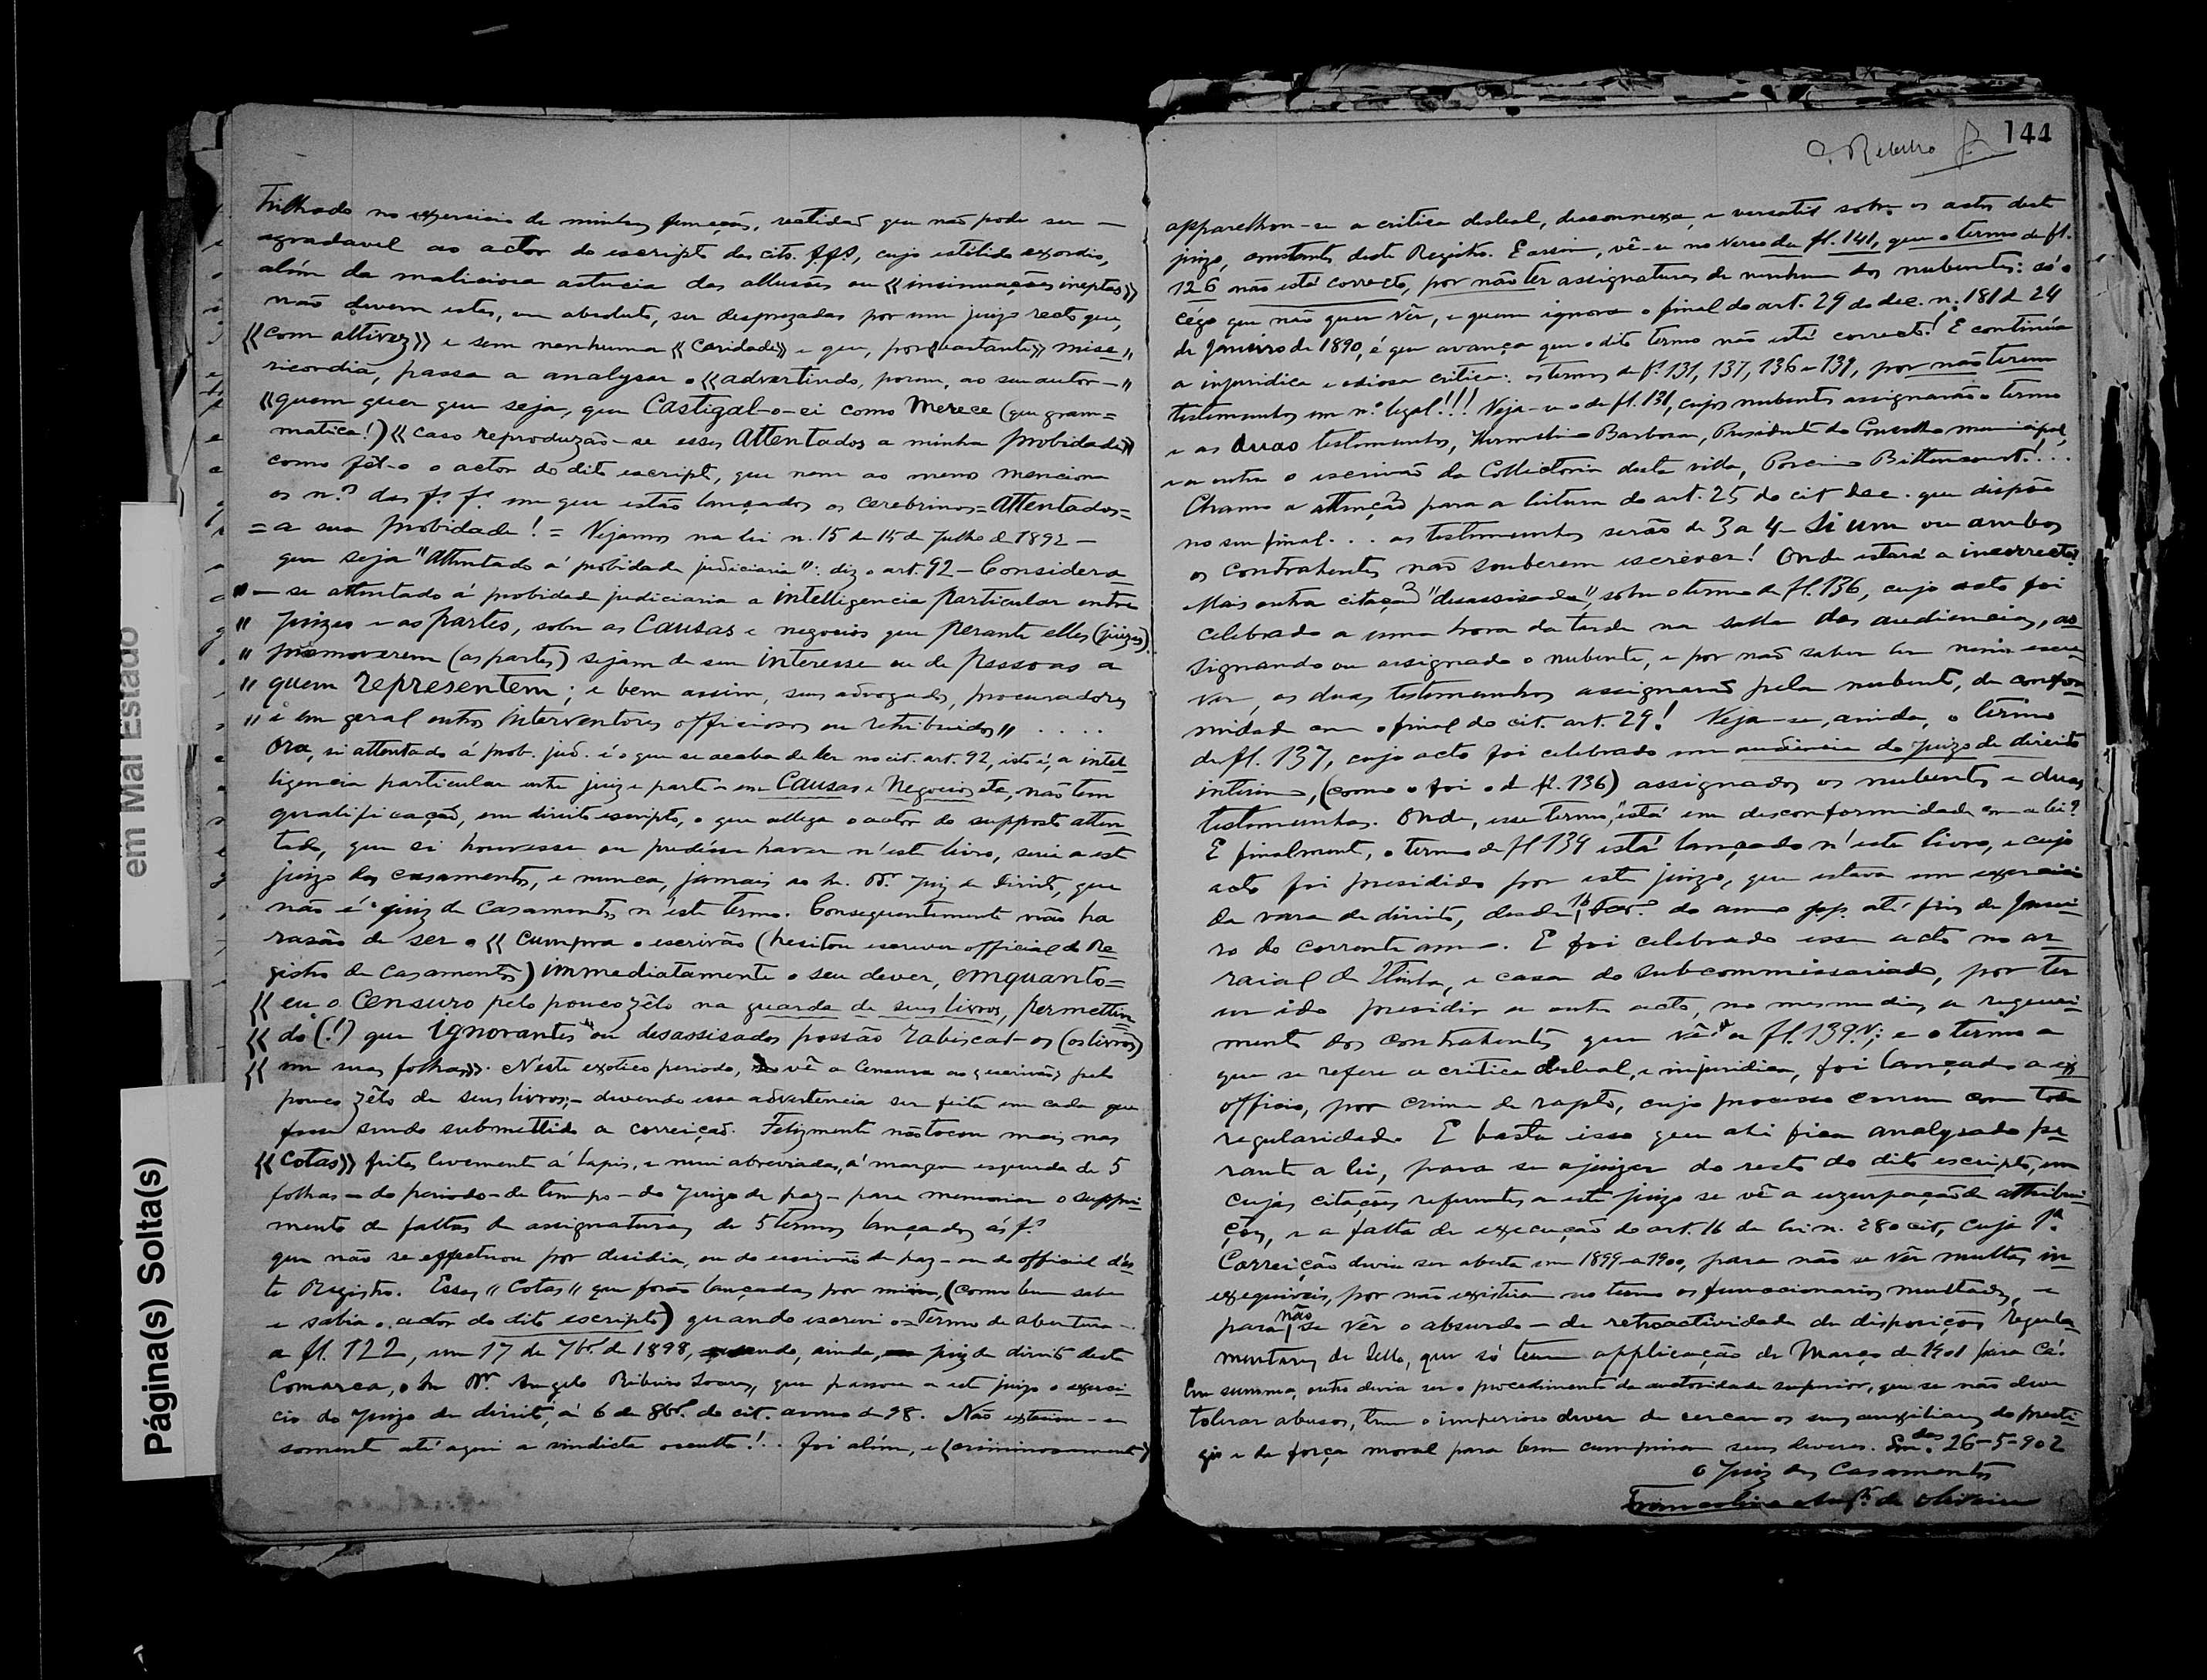 em Mal Estado
Página(s) Solta(s)
Trilhado no exercicio de minhas funcções, realidad que não pode ser —
agradavel ao actor do escripto das cits. ffs, cujo estolido exordio,
além da maliciosa astucia das allusões ou «insinuações ineptas»
não devem estas, em absoluto, ser desprezadas por um juizo recto que,
«com altivez» e sem nenhuma «caridade» e que, por «bastante» mise „
ricordia, passa a analysar o «advertindo, porem, ao seu autor — „
«quem quer que seja, que Castigal-o-ei como merece (que gram=
matica!) «caso reproduzão-se esses Attentados a minha probidade»
como fêl-o o actor do dito escripto, que nem ao menos menciona
os n.os das fs. fs. em que estão lançados os cerebrinos = Attentados =
= a sua probidade! = Vejamos na lei n. 15 de 15 de Julho de 1892 —
que seja "Attentado á probidade judiciaria": diz o art. 92 — Considera
" — se attentado á probidade judiciaria a intelligencia particular entre
" Juizes e as partes, sobre as Causas e negocios que perante elles (juizes)
" promoverem (as partes) sejam de seu interesse ou de pessoas a
" quem representem; e bem assim, seus advogados, procuradores
" e em geral outros interventores officiosos ou retribuidos" . . . .
Ora, si attentado á prob. jud. é o que se acaba de ler no cit. art. 92, isto é, a intel-
ligencia particular entre juiz e parte — em Causas e Negocios etc, não tem
qualificação, em direito escripto, o que allega o autor do supposto atten
tado, que si houvesse ou pudésse haver n'este livro, seria a este
juizo dos casamentos, e nunca, jamais ao Sr. Dr. Juiz de Direito, que
não é juiz de Casamentos n'este termo. Conseguentemente não ha
rasão de ser o «Cumpra o escrivão (hesitou escrever official do Re
gistro de Casamentos) immediatamente o seu dever, emquanto =
«eu o Censuro pelo pouco zêlo na guarda de seus livros, permettin
«do (!) que ignorantes ou desassisados possão rabiscal-os (os livros)
«em suas folhas». N'este exotico periodo, se vê a Censura ao escrivão pelo
pouco zêlo de seus livros; — devendo essa advertencia ser feita em cada que
fosse sendo submettido a correição. Felizmente não tocou mais nas
«Cotas» feitas levemente á lapis, e mui abreviadas, á margem esquerda de 5
folhas — do periodo — de tempo — do Juizo de paz — para memoriar o suppri-
mento de faltas de assignaturas de 5 termos lançados ás fs.
que não se effectuou por desidia, ou do escrivão de paz — ou do official d'es
te Registro. Essas "Cotas" que forão lançadas por mim, (como bem sabe
e sabia o actor do dito escripto) quando escrevi o = Termo de abertura —
a fl. 122, em 17 de 7br.o de 1898, sendo, ainda, juiz de direito desta
Comarca, o Sr. Dr. Angelo Ribeiro Soares, que passou a este juizo o exerci-
cio do juizo de direito, á 6 de 8br.o do cit. anno de 98. Não extasiou-se
somente até aqui a vindicta occulta!.. foi além, e (criminosamente)
144
apparelhou-se a critica desleal, desconnexa, e versatil sobre os actos deste
juizo, constantes deste Registro. E assim, vê-se no verso da fl. 141, que o termo de fl.
126 não está correcto, por não ter assignaturas de nenhum dos nubentes: só o
cégo que não quer vêr, e quem ignora o final do art. 29 do dec. n. 181 de 24
de Janeiro de 1890, é que avança que o dito termo não está correcto! E continúa
a injuridica e odiosa critica: os termos de fs. 131, 137, 136 e 139, por não terem
testemunhas em n.o legal!!! Veja-se o de fl. 131, cujos nubentes assignarão o termo
e as duas testemunhas, Hermelino Barbosa, Presidente do Conselho municipal,
e a outra o escrivão da Collectoria desta villa, Porcino Bittencourt!...
Chamo a attenção para a leitura do art. 25 do cit dec. que dispõe
no seu final... as testemunhas serão de 3 a 4 — Si um ou ambos
os contrahentes não souberem escrever! Onde estará a incorrecto?
Mais outra citação "desassisada", sobre o termo de fl. 136, cujo acto foi
celebrado a uma hora da tarde na salla das audiencias, as
signando ou assignado o nubente, e por não saber ler nem escre
ver, as duas testemunhas assignarão pela nubente, de confor
midade com o final do cit. art. 29! Veja-se, ainda, o termo
de fl. 137, cujo acto foi celebrado em audiencia do juizo de direito
interino, (como o foi o de fl. 136) assignados os nubentes e duas
testemunhas. Onde, esse termo, está em desconformidade com a lei?
E finalmente, o termo de fl 139 está lançado n'este livro, e cujo
acto foi presidido por este juizo, que estava em exercicio
da vara de direito, desde 16 do anno pp. até fins de Janei-
ro do corrente anno. E foi celebrado esse acto no ar
raial de, e casa do subcommissariado, por ter
eu ido presidir a outro acto, no mesmo dia, a requeri-
mento dos contrahentes que vê-se a fl. 139.v; e o termo a
que se refere a critica desleal, e injuridica, foi lançado a ex
officio, por crime de rapto, cujo processo correu com toda
regularidade. E basta isso que ahi fica analysado pe-
rante a lei, para se ajuizar do resto do dito escripto, em
cujas citações referentes a este juizo se vê a uzurpação de attribui
ções, e a falta de execução do art. 16 da lei n. 280 cit, cuja 1a.
Correição devia ser aberta em 1899 a 1900, para não se vêr multas in-
exequiveis, por não existirem no termo os funccionarios multados, e
para não se vêr o absurdo — de retroactividade de disposições Regula
mentares de Sello, que só teem applicação de Março de 1901 para cá.
Em summa, outro devia ser o procedimento da auctoridade superior, que se não deve
tolerar abusos, tem o imperioso dever de cercar os seus auxiliares do presti-
gio e da força moral para bem cumprirem seus deveres. 26-5-902
O Juiz dos Casamentos
de Oliveira